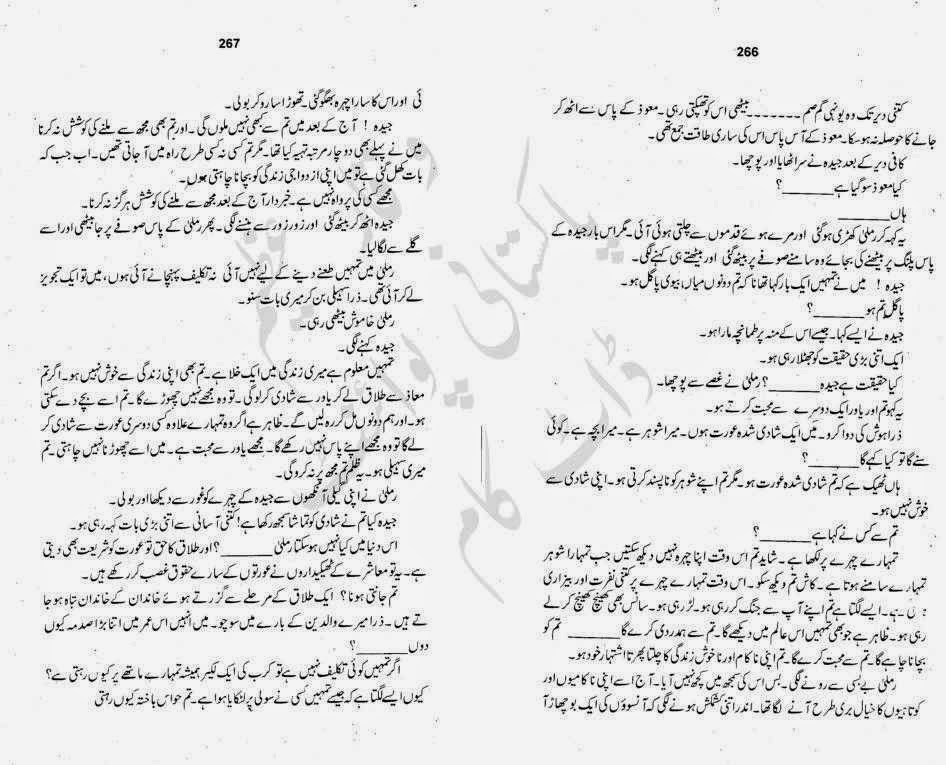 266
کتنی دیر تک وہ یونہی گم صم ۔۔۔۔۔۔۔ بیٹھی اس کو تھپکتی رہی۔ معوذ کے پاس سے اٹھ کر
جانے کا حوصلہ نہ ہوسکا۔ معوذ کے آس پاس اس کی ساری طاقت جمع تھی۔
کافی دیر کے بعد جیدہ نے سر اٹھایا اور پوچھا۔
کیا معوذ سو گیا ہے ______؟
ہاں ______
یہ کہہ کر رملیٰ کھڑی ہوگئی اور مرے ہوئے قدموں سے چلتی ہوئی آئی۔ مگر اس بار جیدہ کے
پاس پلنگ پر بیٹھنے کی بجائے وہ سامنے صوفے پر بیٹھ گئی اور بیٹھتے ہی کہنے لگی۔
جیدہ ! میں نے تمہیں ایک بار کہا تھا نا کہ تم دونوں میاں، بیوی پاگل ہو۔
پاگل تم ہو ______؟
جیدہ نے ایسے کہا۔ جیسے اس کے منہ پر طمانچہ مارا ہو۔
ایک اتنی بڑی حقیقت کو جھٹلا رہی ہو۔
کیا حقیقت ہے جیدہ ______؟ رملیٰ نے غصے سے پوچھا۔
یہ کہو تم اور یاور ایک دوسرے سے محبت کرتے ہو۔
ذرا ہوش کی دوا کرو۔ میں ایک شادی شدہ عورت ہوں۔ میرا شوہر ہے۔ میرا بچہ ہے۔ کوئی
سنے گا تو کیا کہے گا ______؟
ہاں ٹھیک ہے کہ تم شادی شدہ عورت ہو۔ مگر تم اپنے شوہر کو ناپسند کرتی ہو۔ اپنی شادی سے
خوش نہیں ہو۔
تم سے کس نے کہا ہے ______؟
تمہارے چہرے پر لکھا ہے۔ شاید تم اس وقت اپنا چہرہ نہیں دیکھ سکتیں جب تمہارا شوہر
تمہارے سامنے ہوتا ہے۔ کاش تم دیکھ سکو۔ اس وقت تمہارے چہرے پر کتنی نفرت اور بیزاری
ہوتی ہے۔ ایسے لگتا ہے تم اپنے آپ سے جنگ کر رہی ہو۔ لڑ رہی ہو۔ سانس بھی کھینچ کھینچ کر لے
رہی ہو۔ ظاہر ہے جو بھی تمہیں اس عالم میں دیکھے گا۔ تم سے ہمدردی کرے گا ______ تم کو
بچانا چاہے گا۔ تم سے محبت کرے گا۔ تم اپنی ناکام اور ناخوش زندگی کا چلتا پھرتا اشتہار خود ہو۔
رملیٰ بے بسی سے رونے لگی۔ بس اس کی سمجھ میں کچھ نہیں آیا۔ آج اسے اپنی ناکامیوں اور
کوتاہیوں کا خیال بری طرح آنے لگا تھا۔ اندر اتنی کشمکش ہونے لگی کہ آنسوؤں کی ایک بوچھاڑ آ
267
ئی اور اس کا سارا چہرہ بھگو گئی۔ تھوڑا سا رو کر بولی۔
جیدہ ! آج کے بعد میں تم سے کبھی نہیں ملوں گی۔ اور تم بھی مجھ سے ملنے کی کوشش نہ کرنا
میں نے پہلے بھی دو چار مرتبہ تہیہ کیا تھا۔ مگر تم کسی نہ کسی طرح راہ میں آجاتی تھیں۔ اب جب کہ
بات کھل گئی ہے تو میں اپنی ازدواجی زندگی کو بچانا چاہتی ہوں۔
مجھے کسی کی پرواہ نہیں ہے۔ خبردار آج کے بعد مجھ سے ملنے کی کوشش ہرگز نہ کرنا۔
جیدہ اٹھ کر بیٹھ گئی اور زور زور سے ہنسنے لگی۔ پھر رملیٰ کے پاس صوفے پر جا بیٹھی اور اسے
گلے سے لگا لیا۔
رملیٰ میں تمہیں طعنے دینے کے لیے نہیں آئی نہ تکلیف پہنچانے آئی ہوں، میں تو ایک تجویز
لے کر آئی تھی۔ ذرا سہیلی بن کر میری بات سنو۔
رملیٰ خاموش بیٹھی رہی۔
جیدہ کہنے لگی۔
تمہیں معلوم ہے میری زندگی میں ایک خلا ہے۔ تم بھی اپنی زندگی سے خوش نہیں ہو۔ اگر تم
معاذ سے طلاق لے کر یاور سے شادی کر لو گی۔ تو وہ مجھے نہیں چھوڑے گا۔ تم اسے بچے دے سکتی
ہو۔ اور ہم دونوں مل کر رہ لیں گے۔ ظاہر ہے اگر وہ تمہارے علاوہ کسی دوسری عورت سے شادی کر
لے گا تو وہ مجھے اپنے پاس نہیں رکھے گا۔ مجھے یاور سے محبت ہے۔ میں اسے چھوڑنا نہیں چاہتی۔ تم
میری سہیلی ہو۔ یہ ظلم تم مجھ پر نہ کرو گی۔
رملیٰ نے اپنی گیلی آنکھوں سے جیدہ کے چہرے کو غور سے دیکھا اور بولی۔
جیدہ کیا تم نے شادی کو تماشا سمجھ رکھا ہے! کتنی آسانی سے اتنی بڑی بات کہہ رہی ہو۔
اس دنیا میں کیا نہیں ہوسکتا رملیٰ ______؟ اور طلاق کا حق تو عورت کو شریعت بھی دیتی
ہے۔ یہ تو معاشرے کے ٹھیکیداروں نے عورتوں کے سارے حقوق غصب کر رکھے ہیں۔
تم جانتی ہونا؟ ایک طلاق کے مرحلے سے گزرتے ہوئے خاندان کے خاندان تباہ ہو جا
تے ہیں۔ ذرا میرے والدین کے بارے میں سوچو۔ میں انہیں اس عمر میں اتنا بڑا صدمہ کیوں
دوں ______؟
اگر تمہیں کوئی تکلیف نہیں ہے تو کرب کی ایک لکیر ہمیشہ تمہارے ماتھے پر کیوں رہتی ہے؟
کیوں ایسے لگتا ہے کہ جیسے تمہیں کسی نے سولی پر لٹکایا ہوا ہے۔ تم حواس باختہ کیوں رہتی
پاکستانی پوائنٹ
ڈاٹ کام